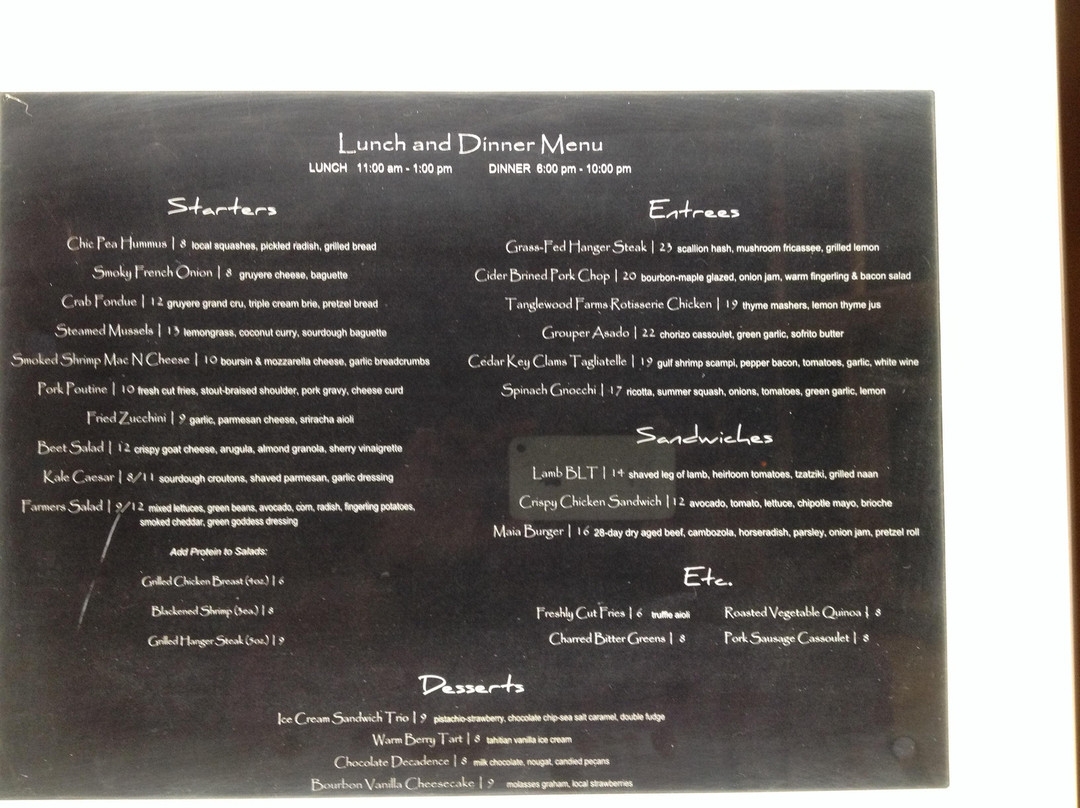 Lunch and Dinner Menu
LUNCH 11:00 am - 1:00 pm DINNER 6:00 pm - 10:00 pm
Starters
Chic Pea Hummus | 8 local squashes, pickled radish, grilled bread
Smoky French Onion | 8 gruyere cheese, baguette
Crab Fondue | 12 gruyere grand cru, triple cream brie, pretzel bread
Steamed Mussels | 13 lemongrass, coconut curry, sourdough baguette
Smoked Shrimp Mac N Cheese | 10 boursin & mozzarella cheese, garlic breadcrumbs
Pork Poutine | 10 fresh cut fries, stout-braised shoulder, pork gravy, cheese curd
Fried Zucchini | 9 garlic, parmesan cheese, sriracha aioli
Beet Salad | 12 crispy goat cheese, arugula, almond granola, sherry vinaigrette
Kale Caesar | 8/11 sourdough croutons, shaved parmesan, garlic dressing
Farmers Salad | 9/12 mixed lettuces, green beans, avocado, corn, radish, fingerling potatoes,
smoked cheddar, green goddess dressing
Add Protein to Salads:
Grilled Chicken Breast (4oz.) | 6
Blackened Shrimp (3ea.) | 8
Grilled Hanger Steak (3oz.) | 9
Entrees
Grass-Fed Hanger Steak | 23 scallion hash, mushroom fricassee, grilled lemon
Cider Brined Pork Chop | 20 bourbon-maple glazed, onion jam, warm fingerling & bacon salad
Tanglewood Farms Rotisserie Chicken | 19 thyme mashers, lemon thyme jus
Grouper Asado | 22 chorizo cassoulet, green garlic, sofrito butter
Cedar Key Clams Tagliatelle | 19 gulf shrimp scampi, pepper bacon, tomatoes, garlic, white wine
Spinach Gnocchi | 17 ricotta, summer squash, onions, tomatoes, green garlic, lemon
Sandwiches
Lamb BLT | 14 shaved leg of lamb, heirloom tomatoes, tzatziki, grilled naan
Crispy Chicken Sandwich | 12 avocado, tomato, lettuce, chipotle mayo, brioche
Maia Burger | 16 28-day dry aged beef, cambozola, horseradish, parsley, onion jam, pretzel roll
Etc.
Freshly Cut Fries | 6 truffle aioli Roasted Vegetable Quinoa | 8
Charred Bitter Greens | 8 Pork Sausage Cassoulet | 8
Desserts
Ice Cream Sandwich Trio | 9 pistachio-strawberry, chocolate chip-sea salt caramel, double fudge
Warm Berry Tart | 8 tahitian vanilla ice cream
Chocolate Decadence | 8 milk chocolate, nougat, candied pecans
Bourbon Vanilla Cheesecake | 9 molasses graham, local strawberries